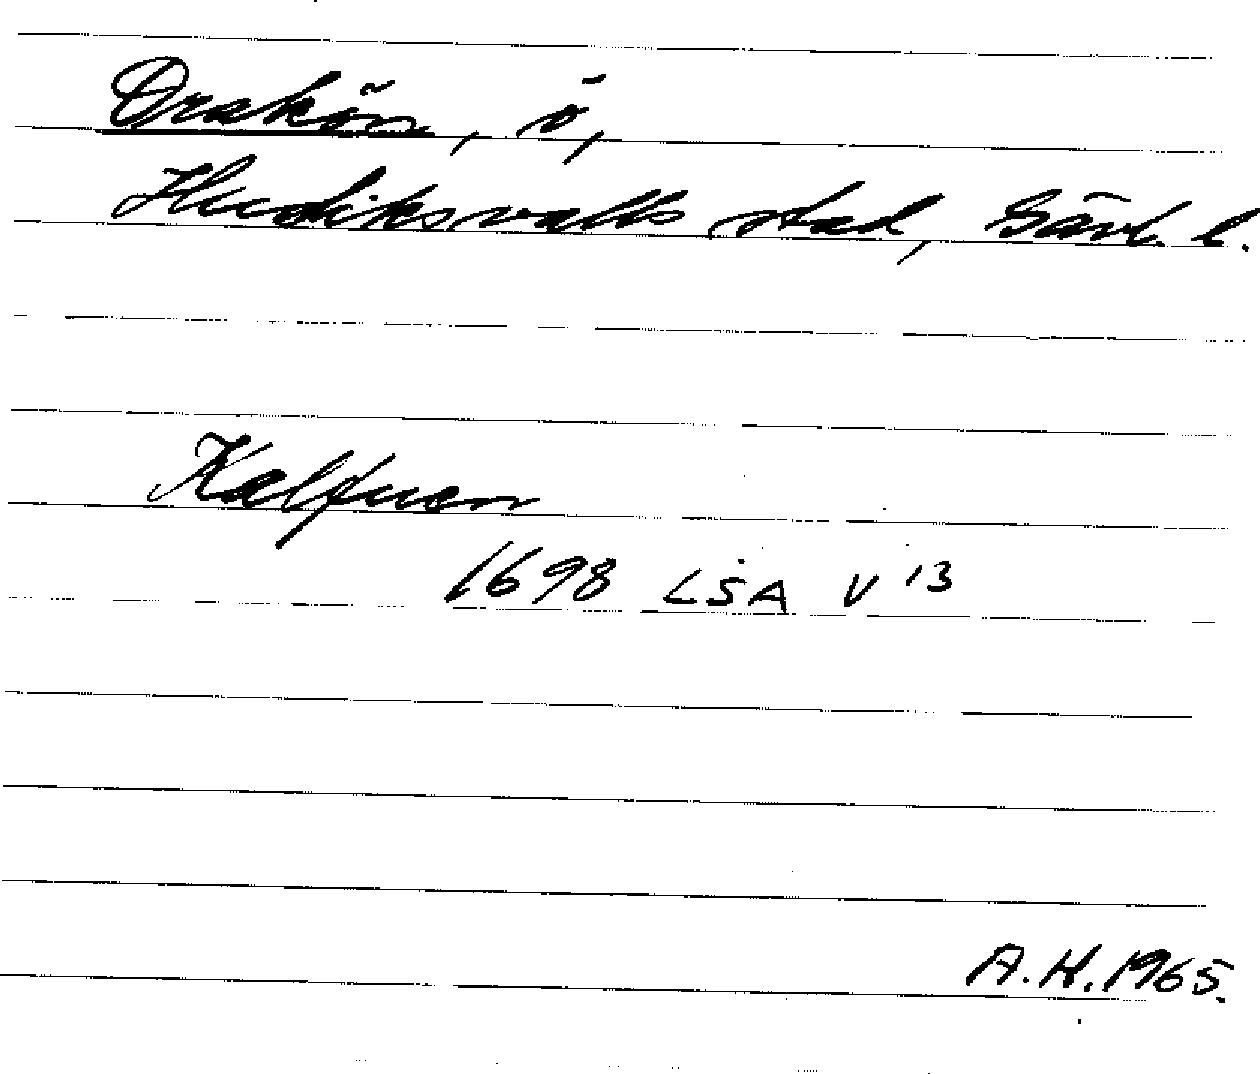 Drakön, ö,
Hudiksvalls stad, Gävl. l.
Kalfuen
1698 LSA V 13
A.K. 1965.